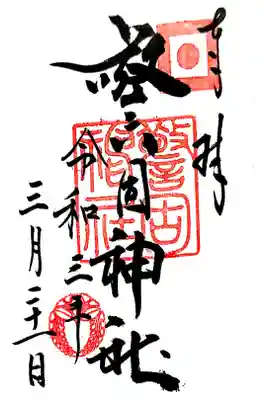 奉拝
警固神社
警固
神社
令和三年
三月二十一日